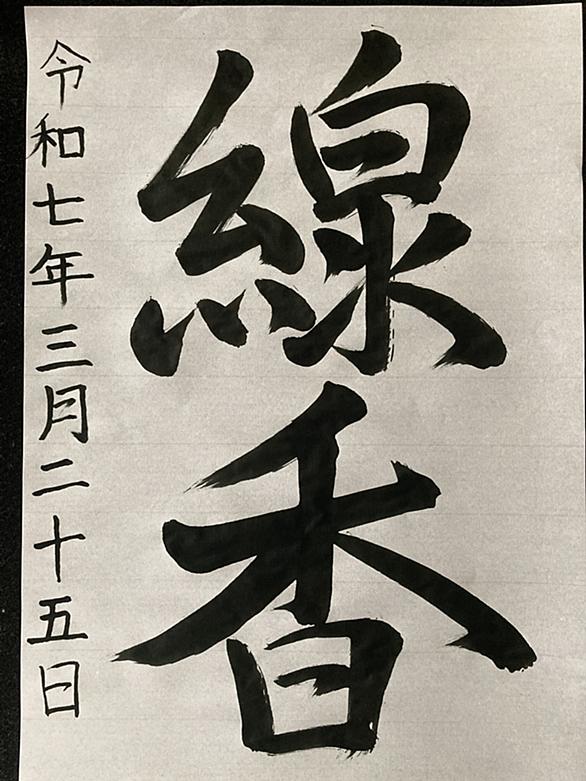 線香
令和七年三月二十五日